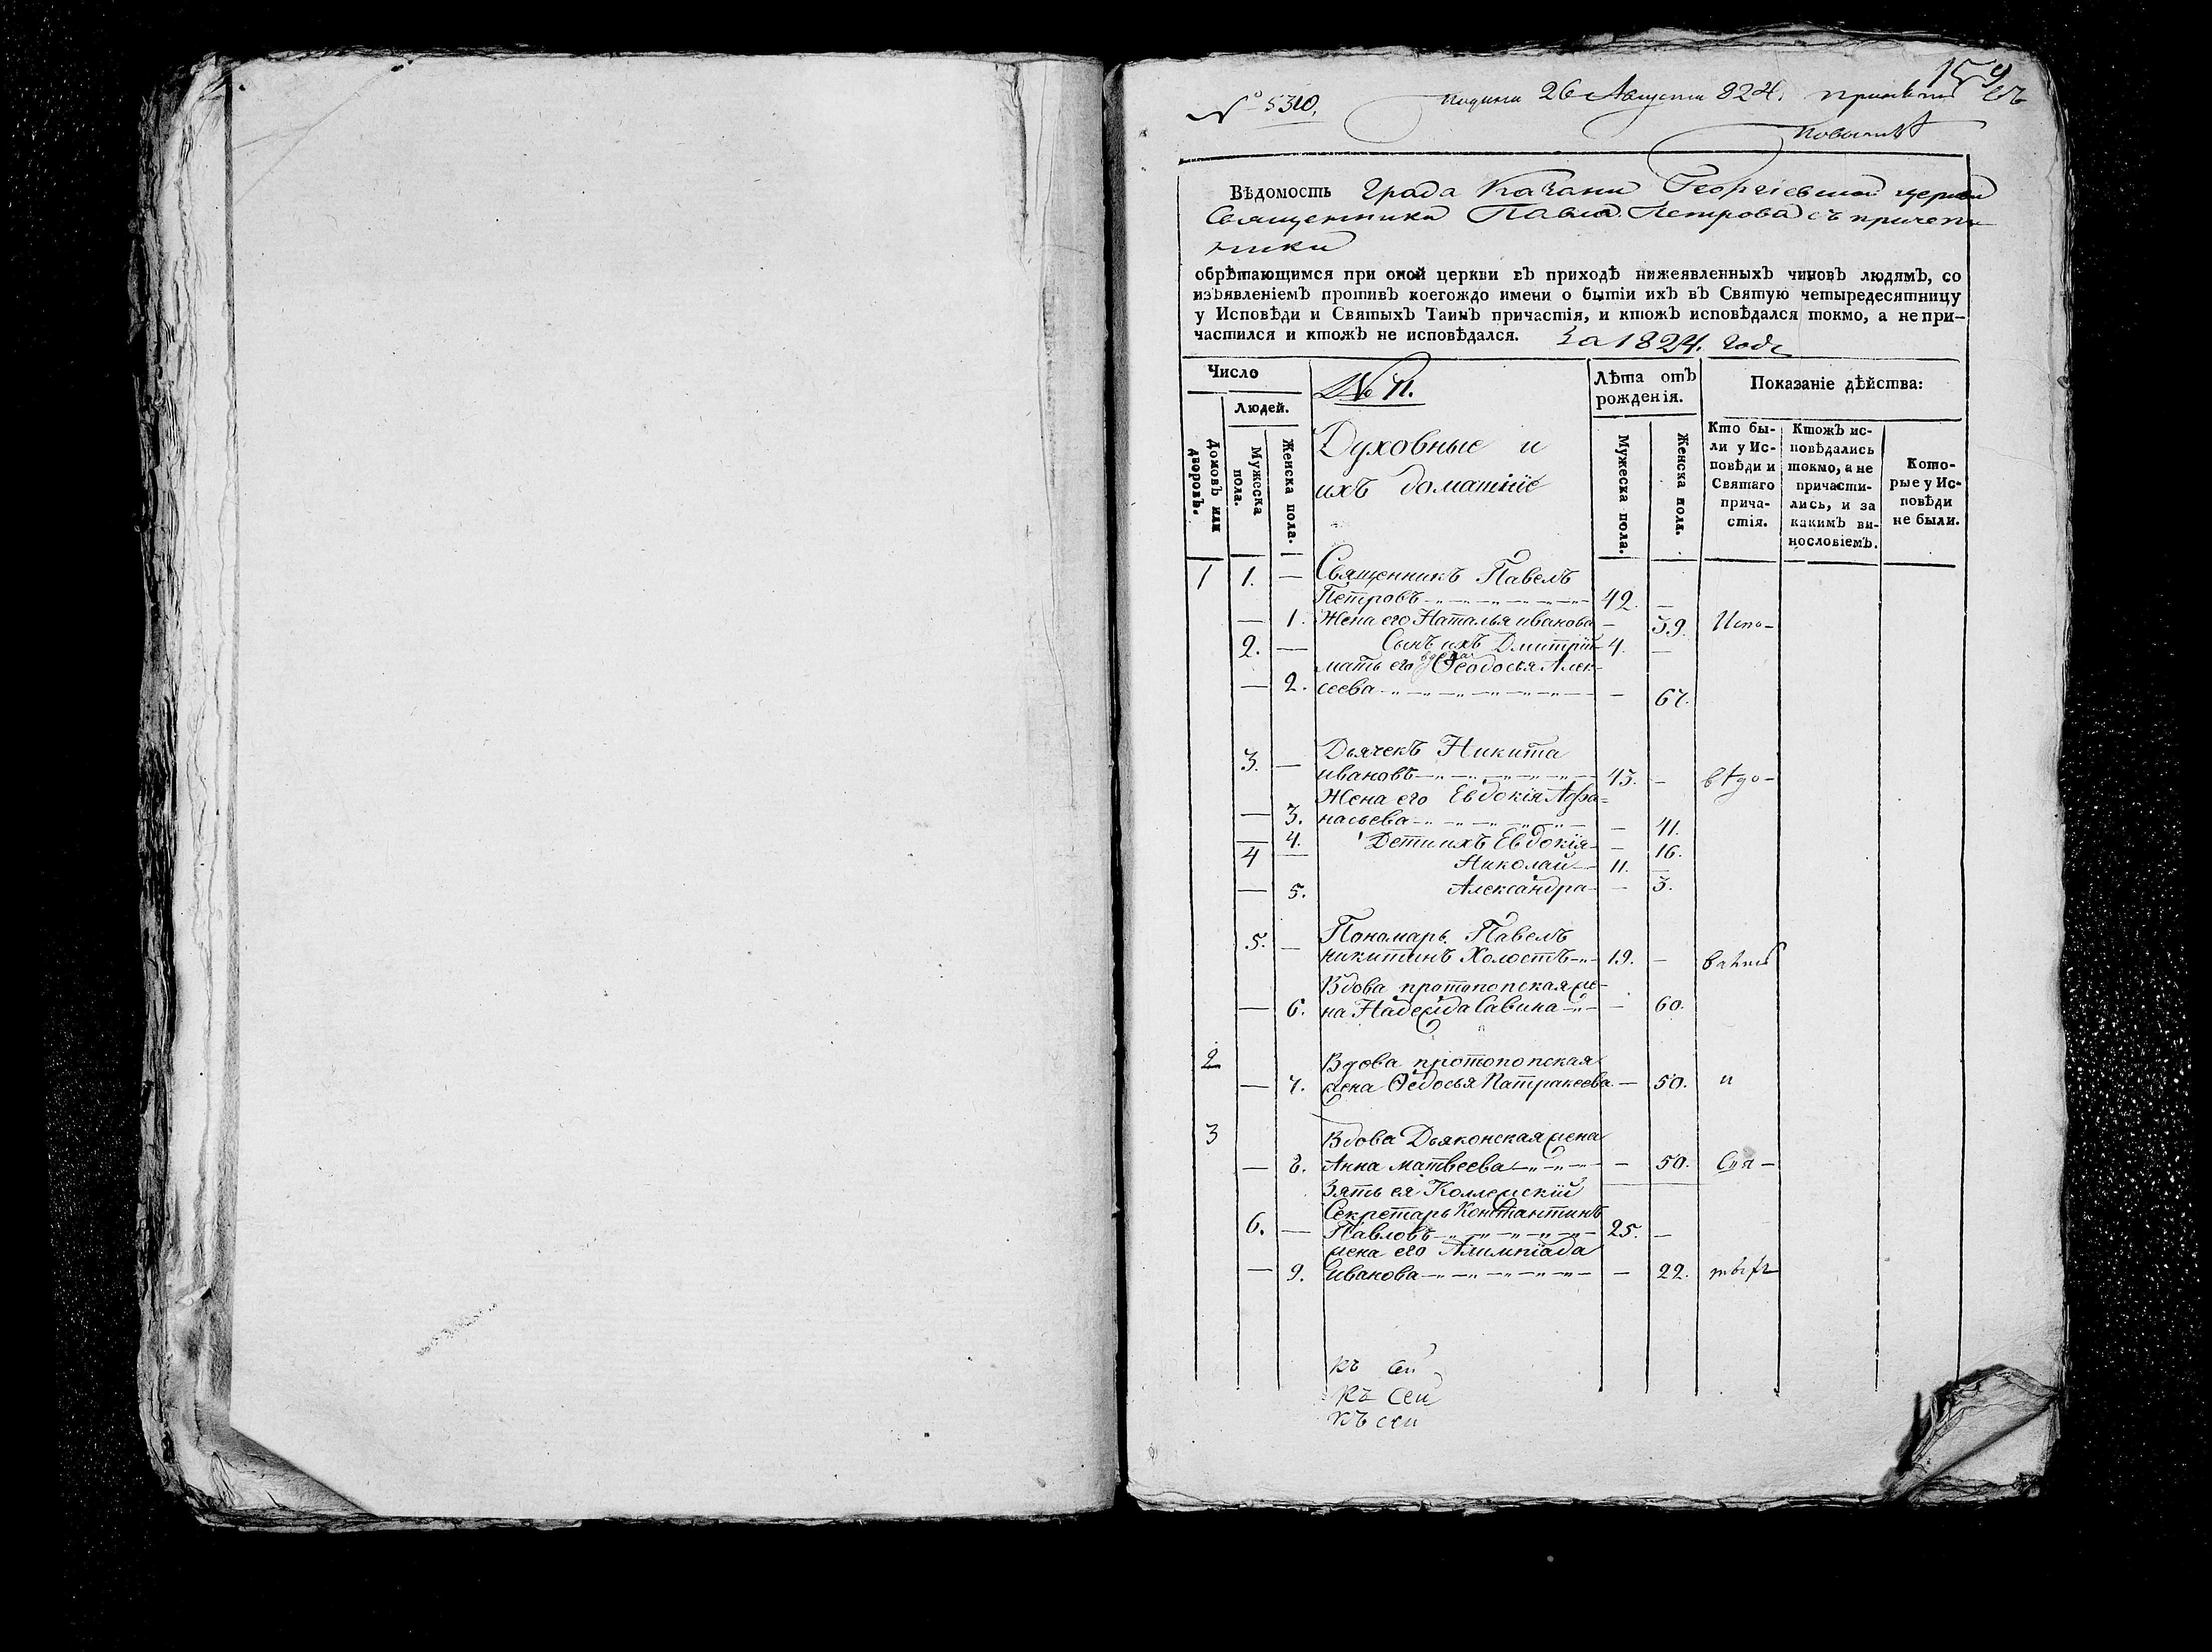 159
№ 5310. 26 Августа 824.
Вѣдомость Града Казани Георгіевской церкви
Священника Павла Петрова съ причетн
ики
обрѣтающимся при оной церкви въ приходѣ нижеявленныхъ чиновъ людямъ, со
изъявленіемъ противъ коегождо имени о бытіи ихъ въ Святую четыредесятницу
у Исповѣди и Святыхъ Таинъ причастія, и ктожъ исповѣдался токмо, а не при-
частился и ктожъ не исповѣдался. За 1824. годъ
Число
Людей.
Домовъ или дворовъ.
Мужеска пола.
Женска пола.
Духовные и
ихъ домашніе
Лѣта отъ
рожденія.
Мужеска пола.
Женска пола.
Показаніе дѣйства:
Кто бы-
ли у Ис-
повѣди и
Святаго
прича-
стія.
Ктожъ ис-
повѣдались
токмо, а не
причасти-
лись, и за
какимъ ви-
нословіемъ.
Кото-
рые у Ис-
повѣди
не были.
1 1. — Священникъ Павелъ
Петровъ 42. —
— 1. Жена его Наталья иванова — 39. Испо-
2. — Сынъ ихъ Дмитрій 4. —
мать его вдовая Феодосья Алек-
— 2. сеева — 67.
3. — Дьячекъ Никита
ивановъ 43. —
Жена его Евдокія Афа-
— 3. насьева — 41.
— 4. Дети ихъ Евдокія — 16.
4 — Николай 11. —
— 5. Александра — 3.
5. — Пономарь Павелъ
никитинъ Холостъ 19. —
Вдова протопопская же-
— 6. на Надежда Савина — 60.
2 Вдова протопопская
— 7. жена Ѳедосья Патракеева — 50. и
3 Вдова Дьяконская жена
— 8. Анна матвеева — 50. Свя-
Зять ея Коллежскій
Секретарь Константинъ
6. — Павловъ 25. —
жена его Алимпіада
— 9. иванова — 22.
къ сей
Къ сей
къ сей